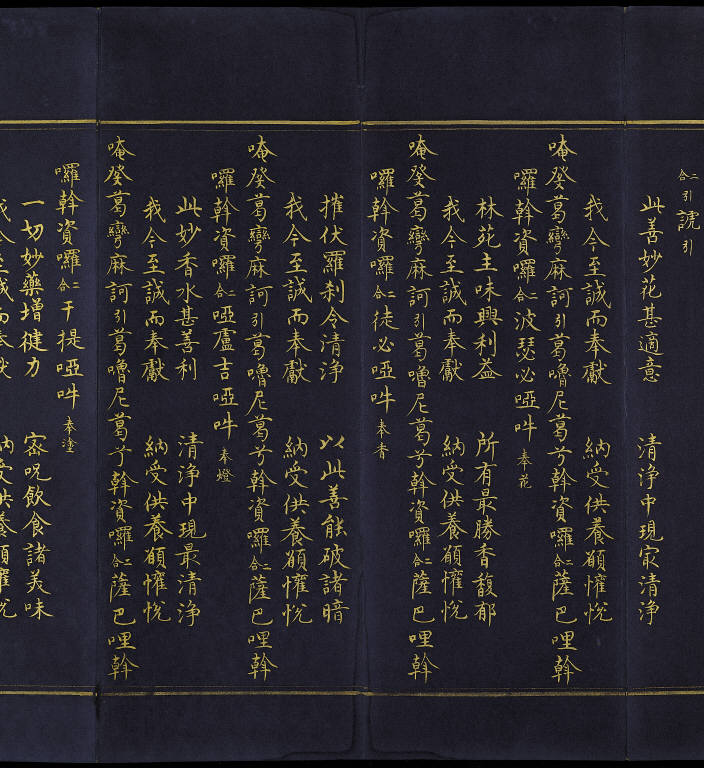 二合引 謕引
此善妙花甚適意 清淨中現冣清淨
我今至誠而奉獻 納受供養願懽悅
唵癹葛彎麻訶引葛嚕尼葛兮幹資囉二合薩巴哩幹
囉幹資囉二合波瑟必啞吽奉花
林苑主味興利益 所有最勝香馥郁
我今至誠而奉獻 納受供養願懽悅
唵癹葛彎麻訶引葛嚕尼葛兮幹資囉二合薩巴哩幹
囉幹資囉二合徒必啞吽奉香
摧伏羅刹令清淨 以此善能破諸暗
我今至誠而奉獻 納受供養願懽悅
唵癹葛彎麻訶引葛嚕尼葛兮幹資囉二合薩巴哩幹
囉幹資囉二合啞盧吉啞吽奉燈
此妙香水甚善利 清淨中現最清淨
我今至誠而奉獻 納受供養願懽悅
唵癹葛彎麻訶引葛嚕尼葛兮幹資囉二合薩巴哩幹
囉幹資囉二合干提啞吽奉塗
一切妙藥增健力 密呪飲食諸美味
我今至誠而奉獻 納受供養願懽悅